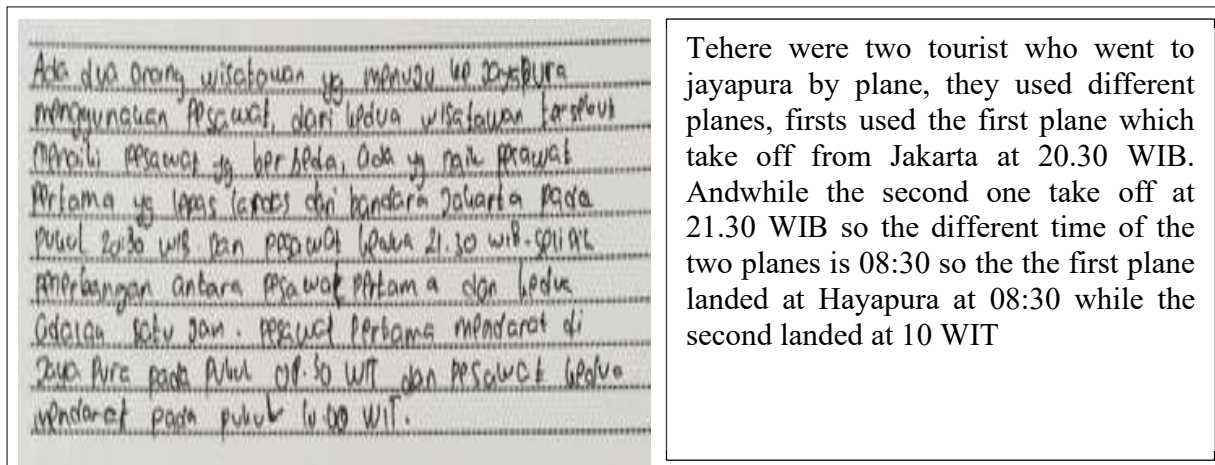 Ada dua orang wisatawan yg menuju ke Jayapura
menggunakan pesawat, dari kedua wisatawan tersebut
menaiki pesawat yg berbeda, ada yg naik pesawat
pertama yg lepas landas dari bandara Jakarta pada
pukul 20:30 WIB dan pesawat kedua 21.30 WIB. selisih
penerbangan antara pesawat pertama dan kedua
adalah satu jam. pesawat pertama mendarat di
Jaya Pura pada pukul 08.30 WIT dan pesawat kedua
mendarat pada pukul 10.00 WIT.
Tehere were two tourist who went to
jayapura by plane, they used different
planes, firsts used the first plane which
take off from Jakarta at 20.30 WIB.
Andwhile the second one take off at
21.30 WIB so the different time of the
two planes is 08:30 so the the first plane
landed at Hayapura at 08:30 while the
second landed at 10 WIT